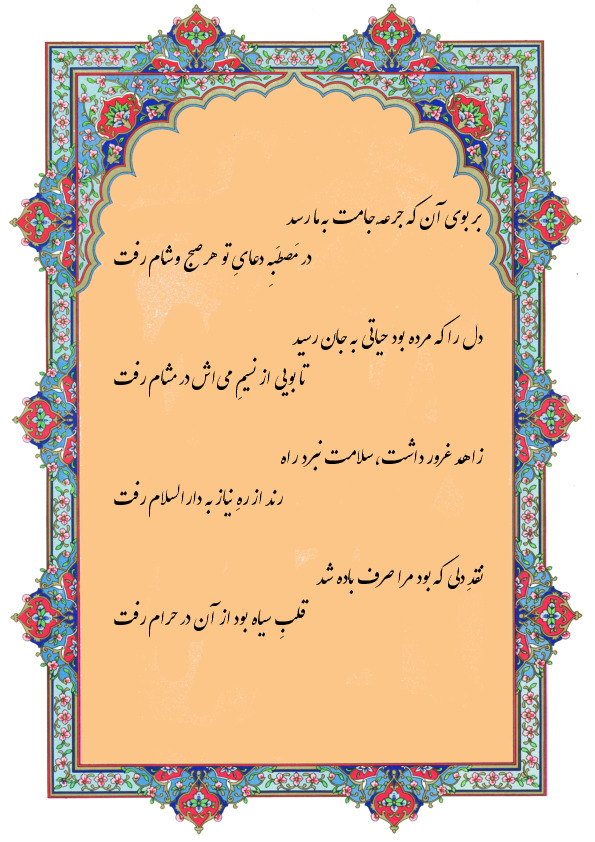 بر بوی آن که جرعه جامت به ما رسد
در مَصطَبِه دعایِ تو هر صبح و شام رفت
دل را که مرده بود حیاتی به جان رسید
تا بویی از نسیمِ می‌اش در مشام رفت
زاهد غرور داشت، سلامت نبرد راه
رند از رهِ نیاز به دارالسلام رفت
نقدِ دلی که بود مرا صرف باده شد
قلبِ سیاه بود از آن در حرام رفت